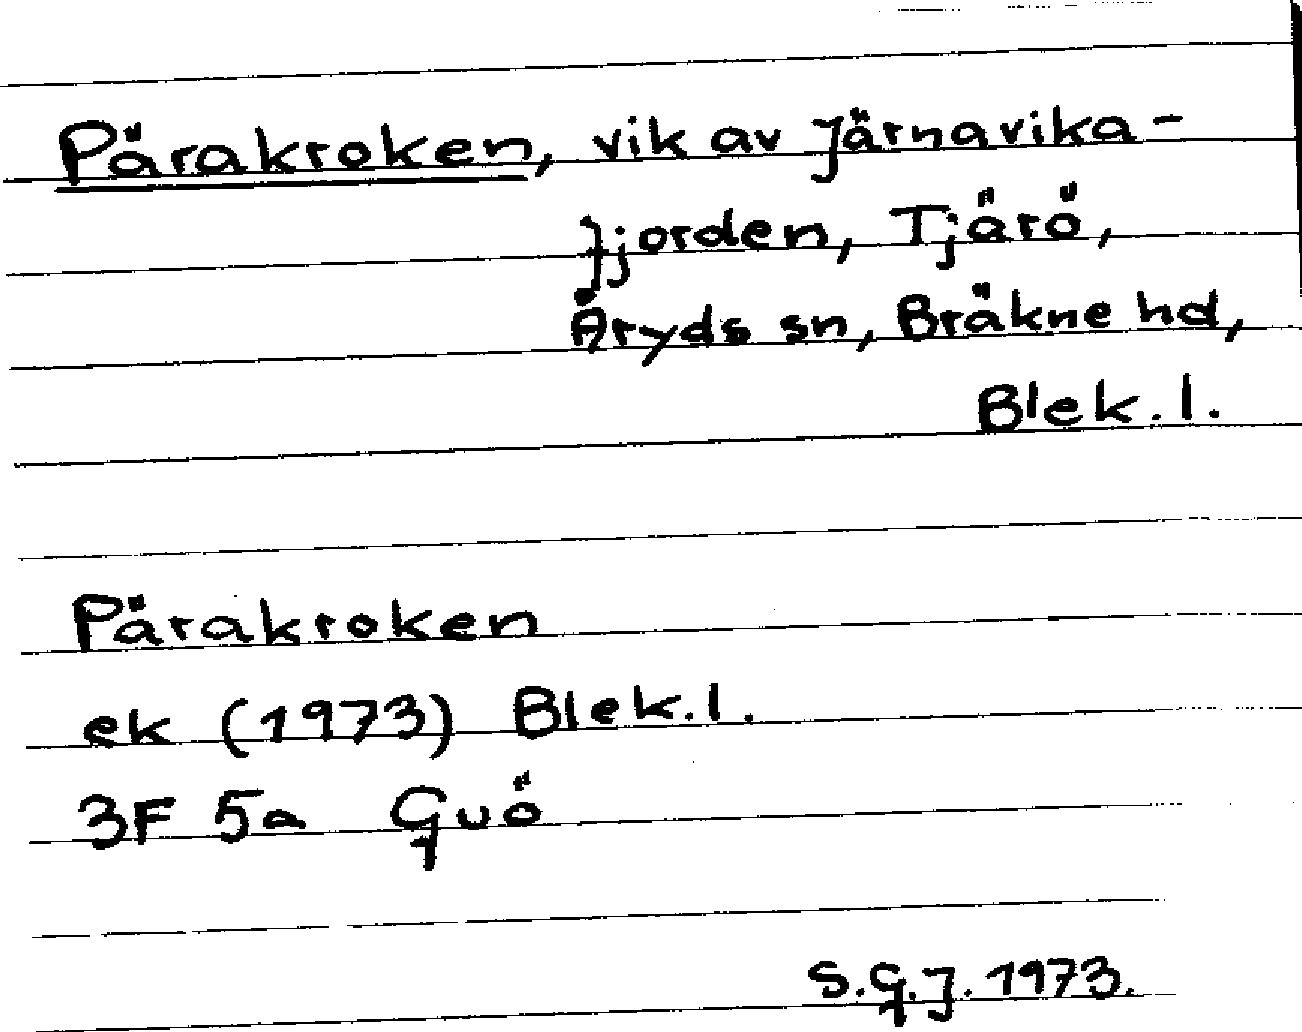 Pärakroken, vik av Järnavika-
fjorden, Tjärö,
Åryds sn, Bräkne hd,
Blek. l.
Pärakroken
ek (1973) Blek. l.
3F 5a Guö
S.G.J. 1973.